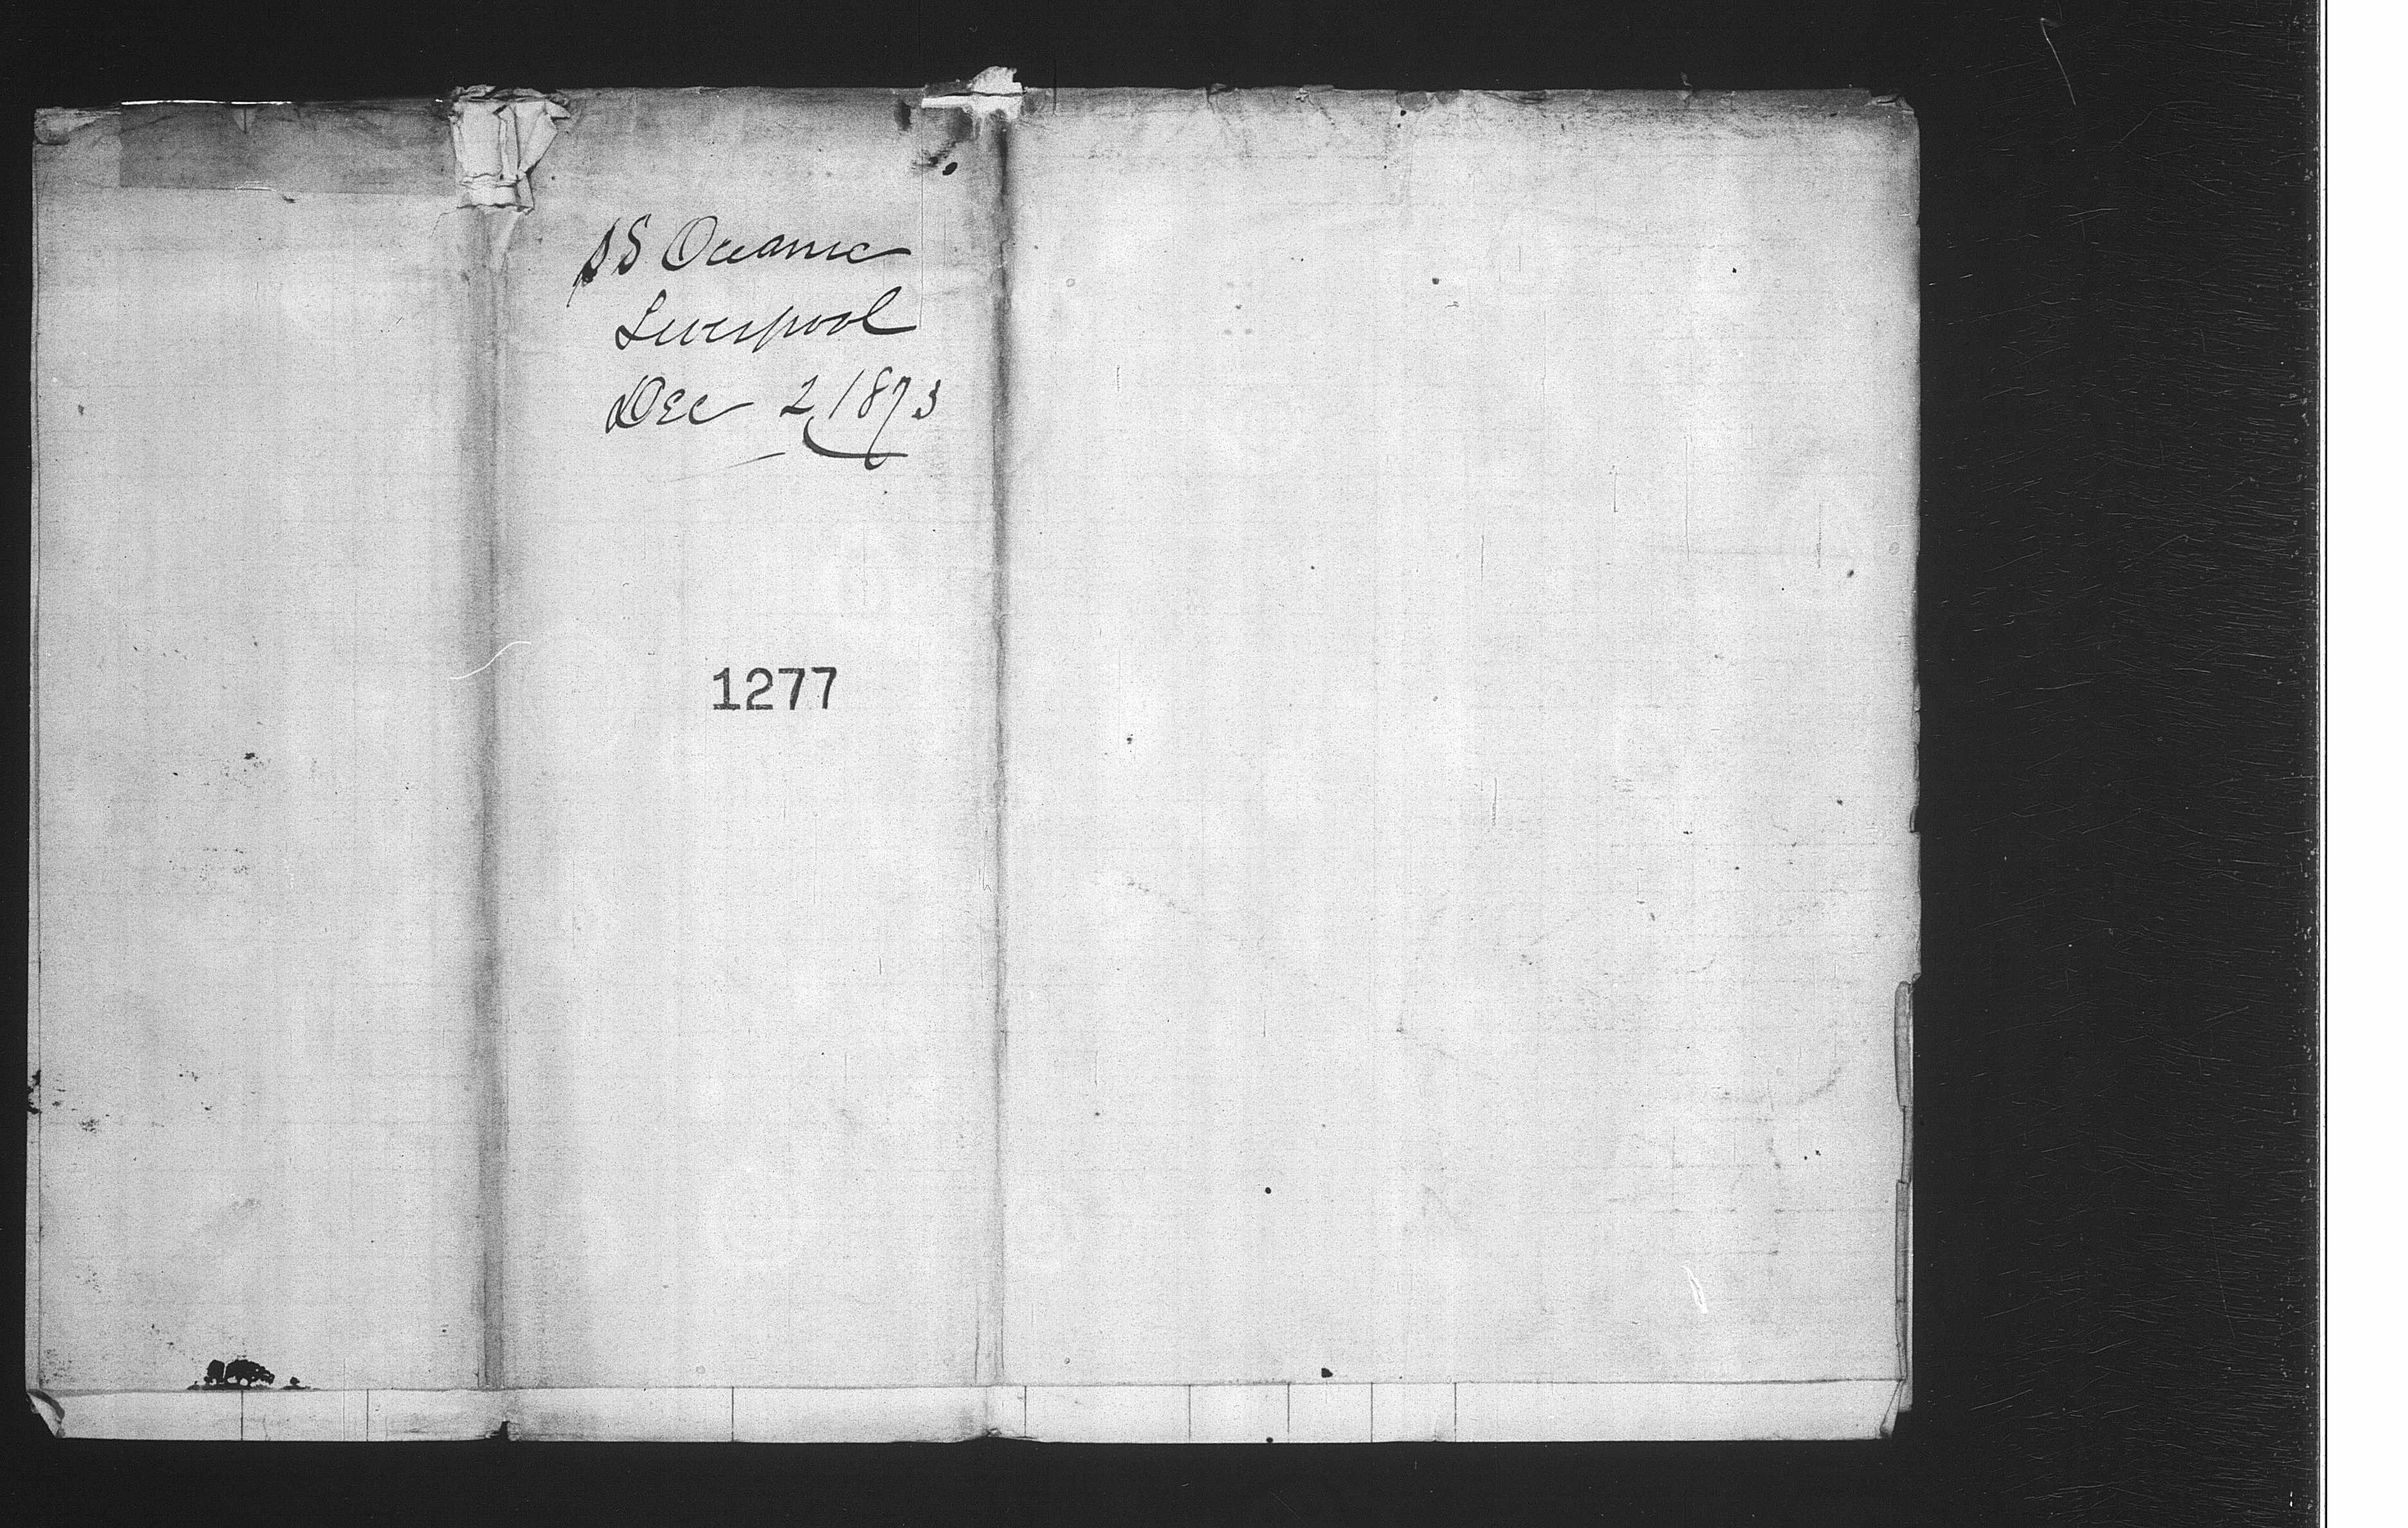 SS Oceanic
Liverpool
Dec 2 1873
1277